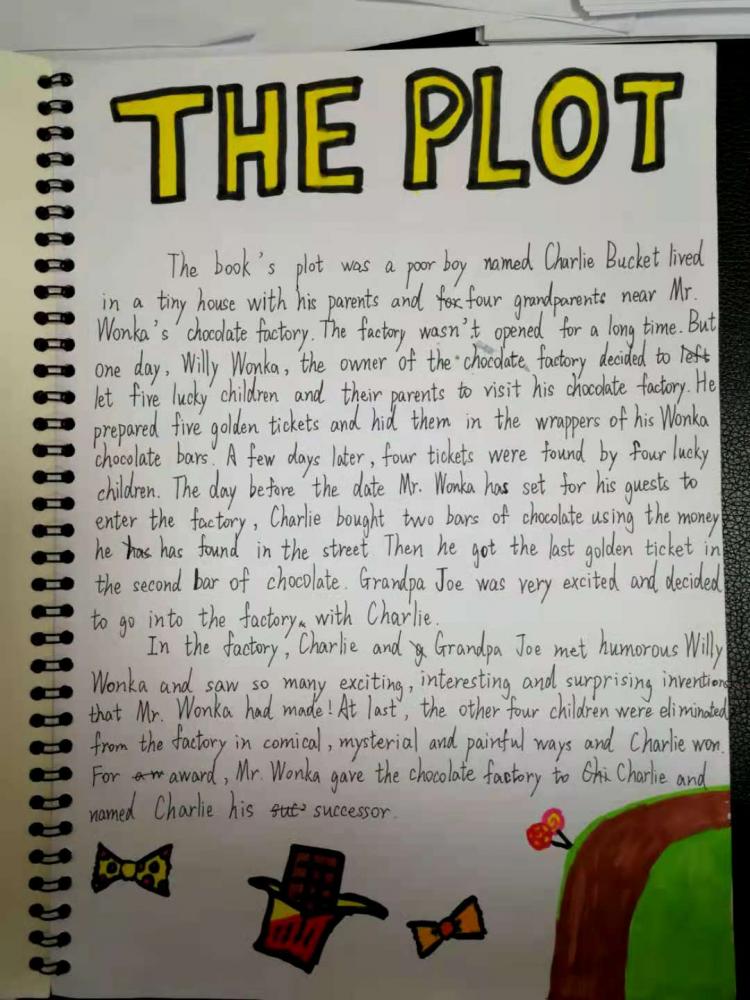 THE PLOT
The book's plot was a poor boy named Charlie Bucket lived
in a tiny house with his parents and for four grandparents near Mr.
Wonka's chocolate factory. The factory wasn't opened for a long time. But
one day, Willy Wonka, the owner of the chocolate factory decided to left
let five lucky children and their parents to visit his chocolate factory. He
prepared five golden tickets and hid them in the wrappers of his Wonka
chocolate bars. A few days later, four tickets were found by four lucky
children. The day before the date Mr. Wonka has set for his guests to
enter the factory, Charlie bought two bars of chocolate using the money
he has has found in the street. Then he got the last golden ticket in
the second bar of chocolate. Grandpa Joe was very excited and decided
to go into the factory with Charlie.
In the factory, Charlie and Grandpa Joe met humorous Willy
Wonka and saw so many exciting, interesting and surprising inventions
that Mr. Wonka had made! At last, the other four children were eliminated
from the factory in comical, mysterial and painful ways and Charlie won.
For an award, Mr. Wonka gave the chocolate factory to Charlie and
named Charlie his successor.